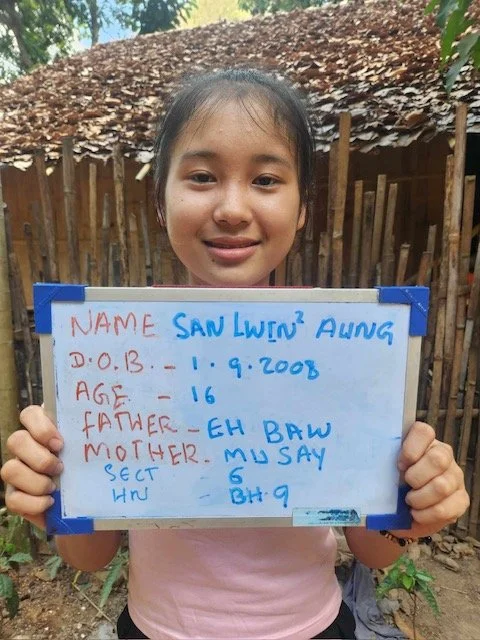 NAME SAN LWIN² AUNG
D.O.B. - 1.9.2008
AGE - 16
FATHER - EH BAW
MOTHER - MU SAY
SECT 6
HN - BH.9